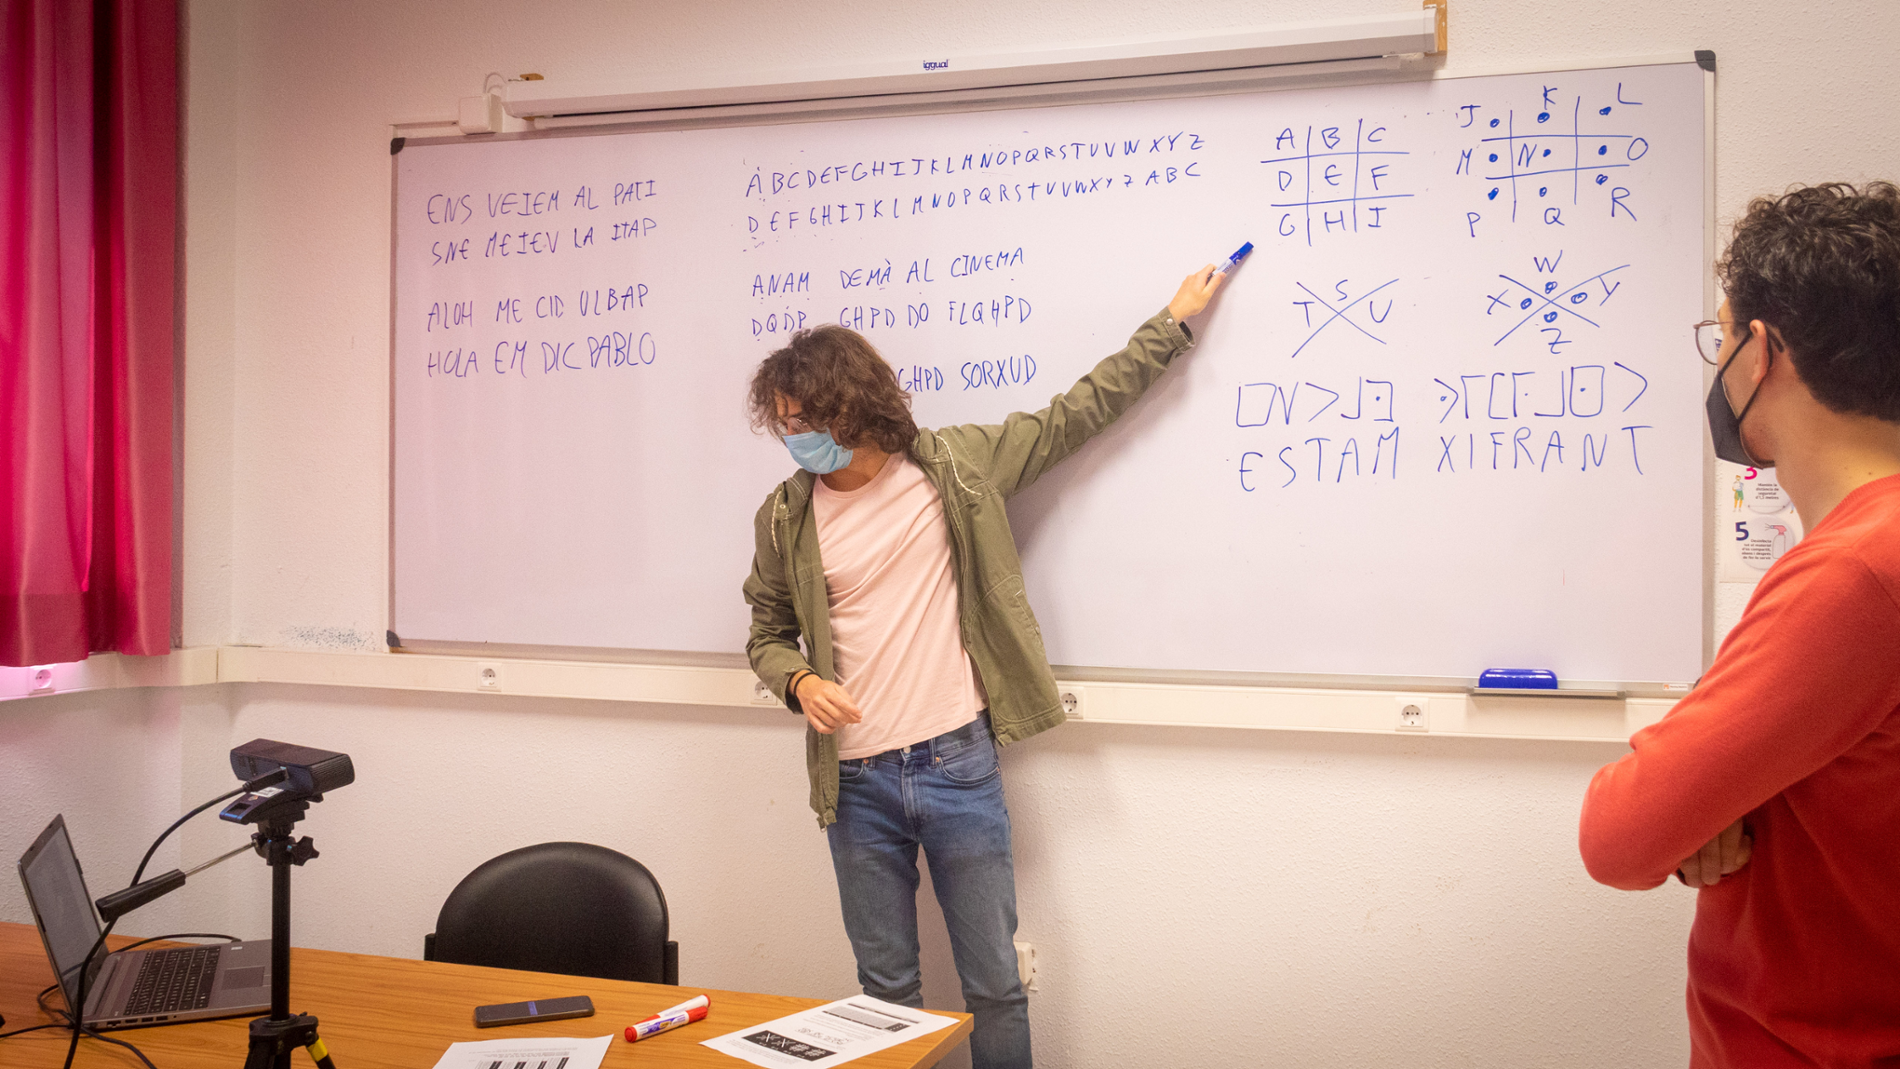 iggual
ENS VEIEM AL PATI
SNE MEIEV LA ITAP
ALOH ME CID OLBAP
HOLA EM DIC PABLO
ABCDEFGHIJKLMNOPQRSTUVWXYZ
DEFGHIJKLMNOPQRSTUVWXYZABC
ANAM DEMÀ AL CINEMA
DQDP GHPD DO FLQHPD
GHPD SORXUD
A B C
D E F
G H I
J K L
M N O
P Q R
S
T U
W
X Y
Z
ESTAM XIFRANT
3
5